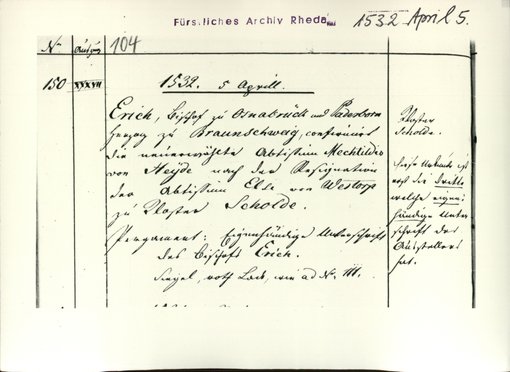 Fürstliches Archiv Rheda
1532 April 5.
No
104
150
XXXVII
1532. 5 Aprill.
Erich, Bischof zu Osnabrück und Paderborn
Herzog zu Braunschweig, confirmirt
die neuerwählte Abtissin Mechtildis
von Heyde nach der Resignation
der Abtissin Else von Westorp
zu Kloster Scholde.
Pergament: Eigenhändige Unterschrift
des Bischofs Erich.
Siegel, roth Lack, wie ad No. III.
Kloster
Scholde.
diese Urkunde ist
erst die dritte
welche eigen-
händige Unter
schrift des
Ausstellers
hat.